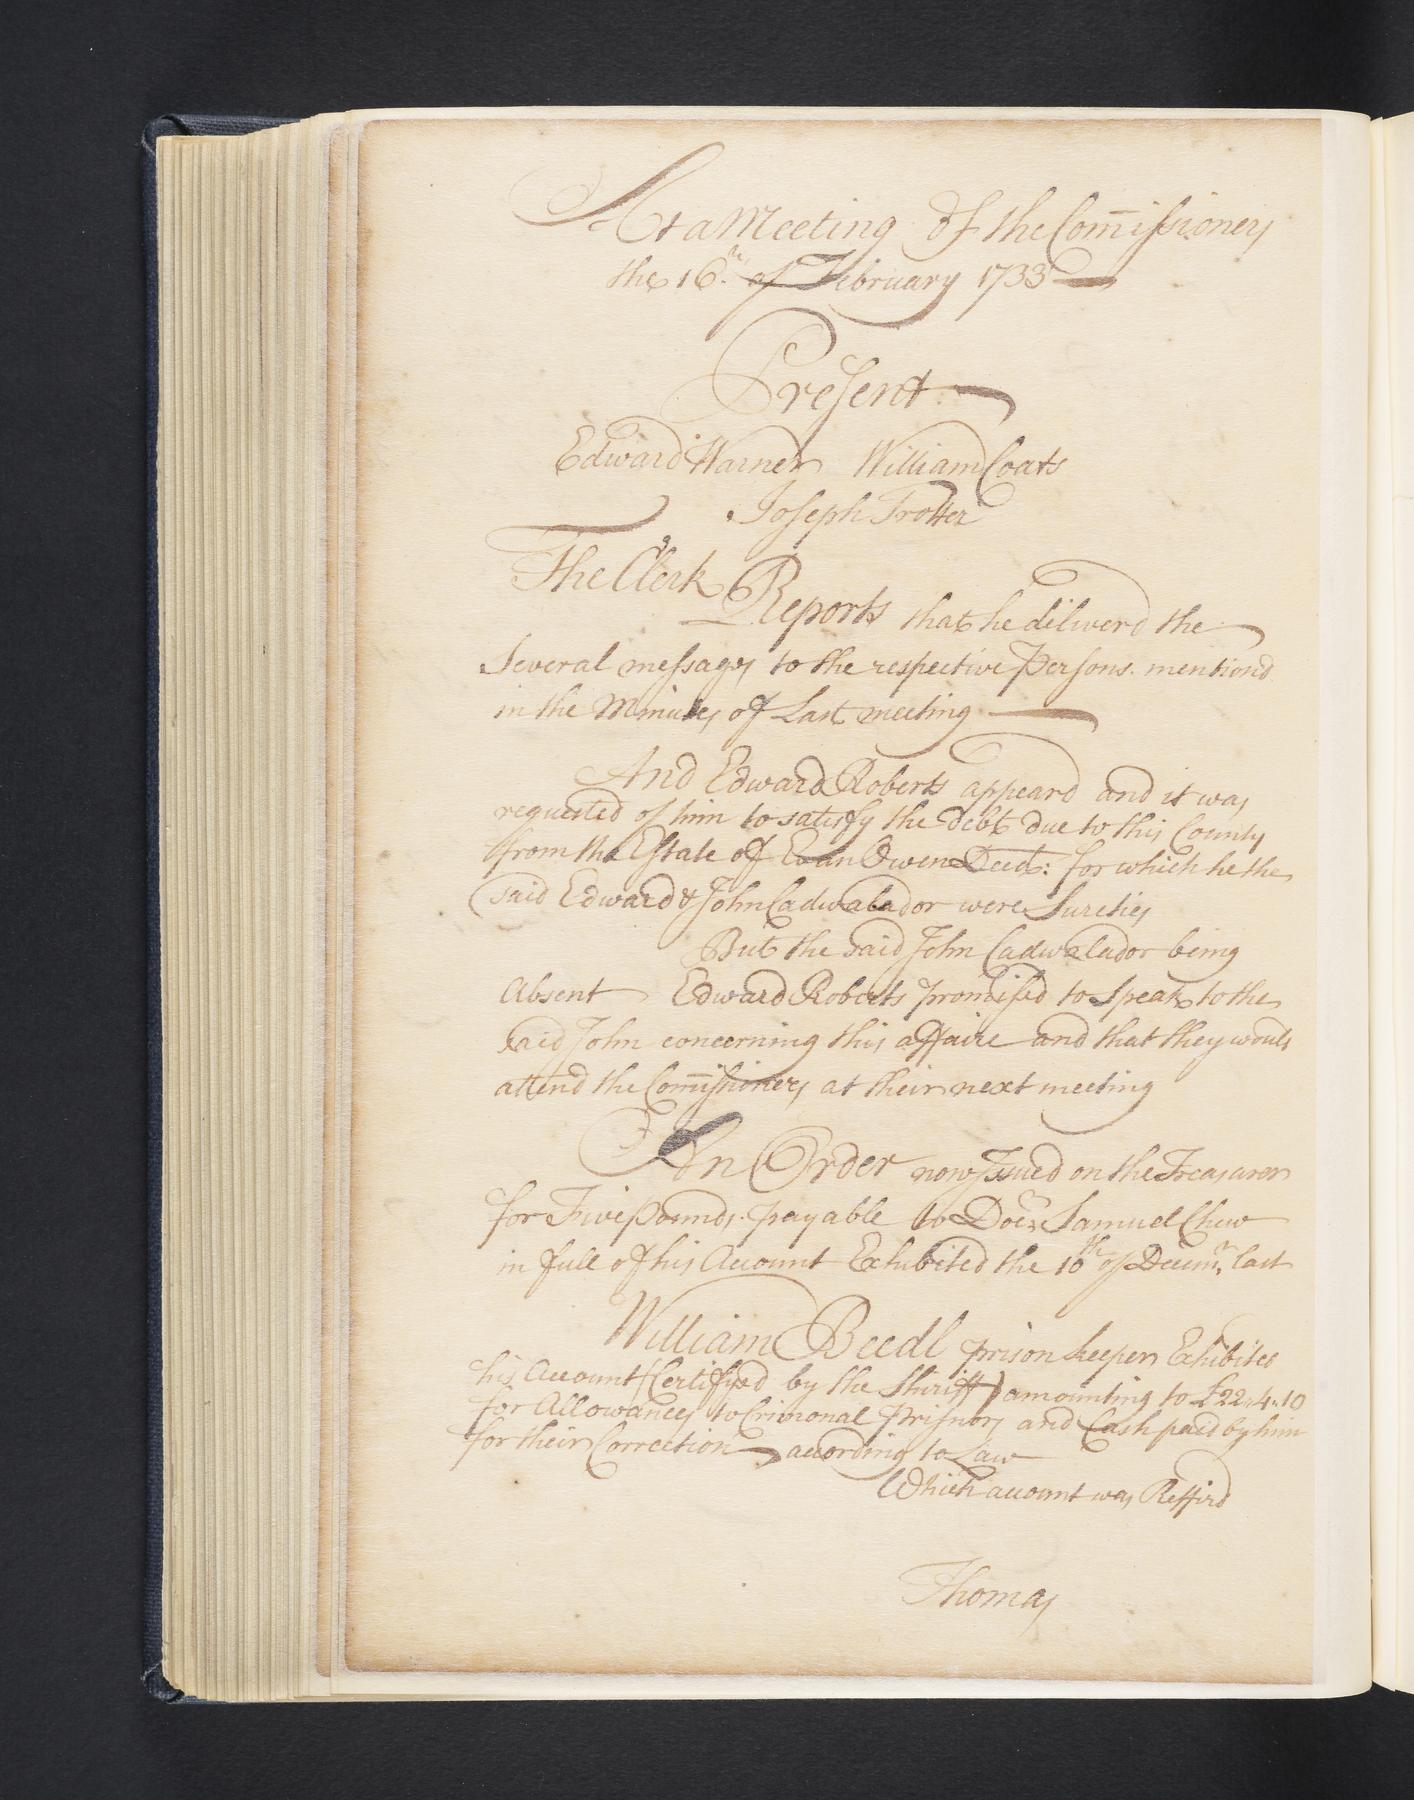 At a Meeting of the Com̅issioners
the 16th of February 1733
Present
Edward Warner William Coats
Joseph Trotter
The Clerk Reports that he deliverd the
Several messages to the respective Persons mentiond
in the Minutes of Last meeting
And Edward Roberts appeard and it was
requested of him to satisfy the debt due to this County
from the Estate of Evan Owen Decd: for which he the
said Edward & John Cadwalador were Sureties
But the said John Cadwalador being
Absent Edward Roberts promised to Speak to the
said John concerning this affaire and that they would
attend the Com̅issiners at their next meeting
An Order now Issued on the Treasurer
for Five pounds payable to Docr Samuel Chew
in full of his Account Exhibited the 10th of Decemr last
William Beedl prison keeper Exhibited
his Account (Certifyed by the Shiriff) amounting to £22,,4,,10
for Allowances to Crimonal Prisnors and Cash paid by him
for their Correction according to Law
Which account was Reffird
Thomas